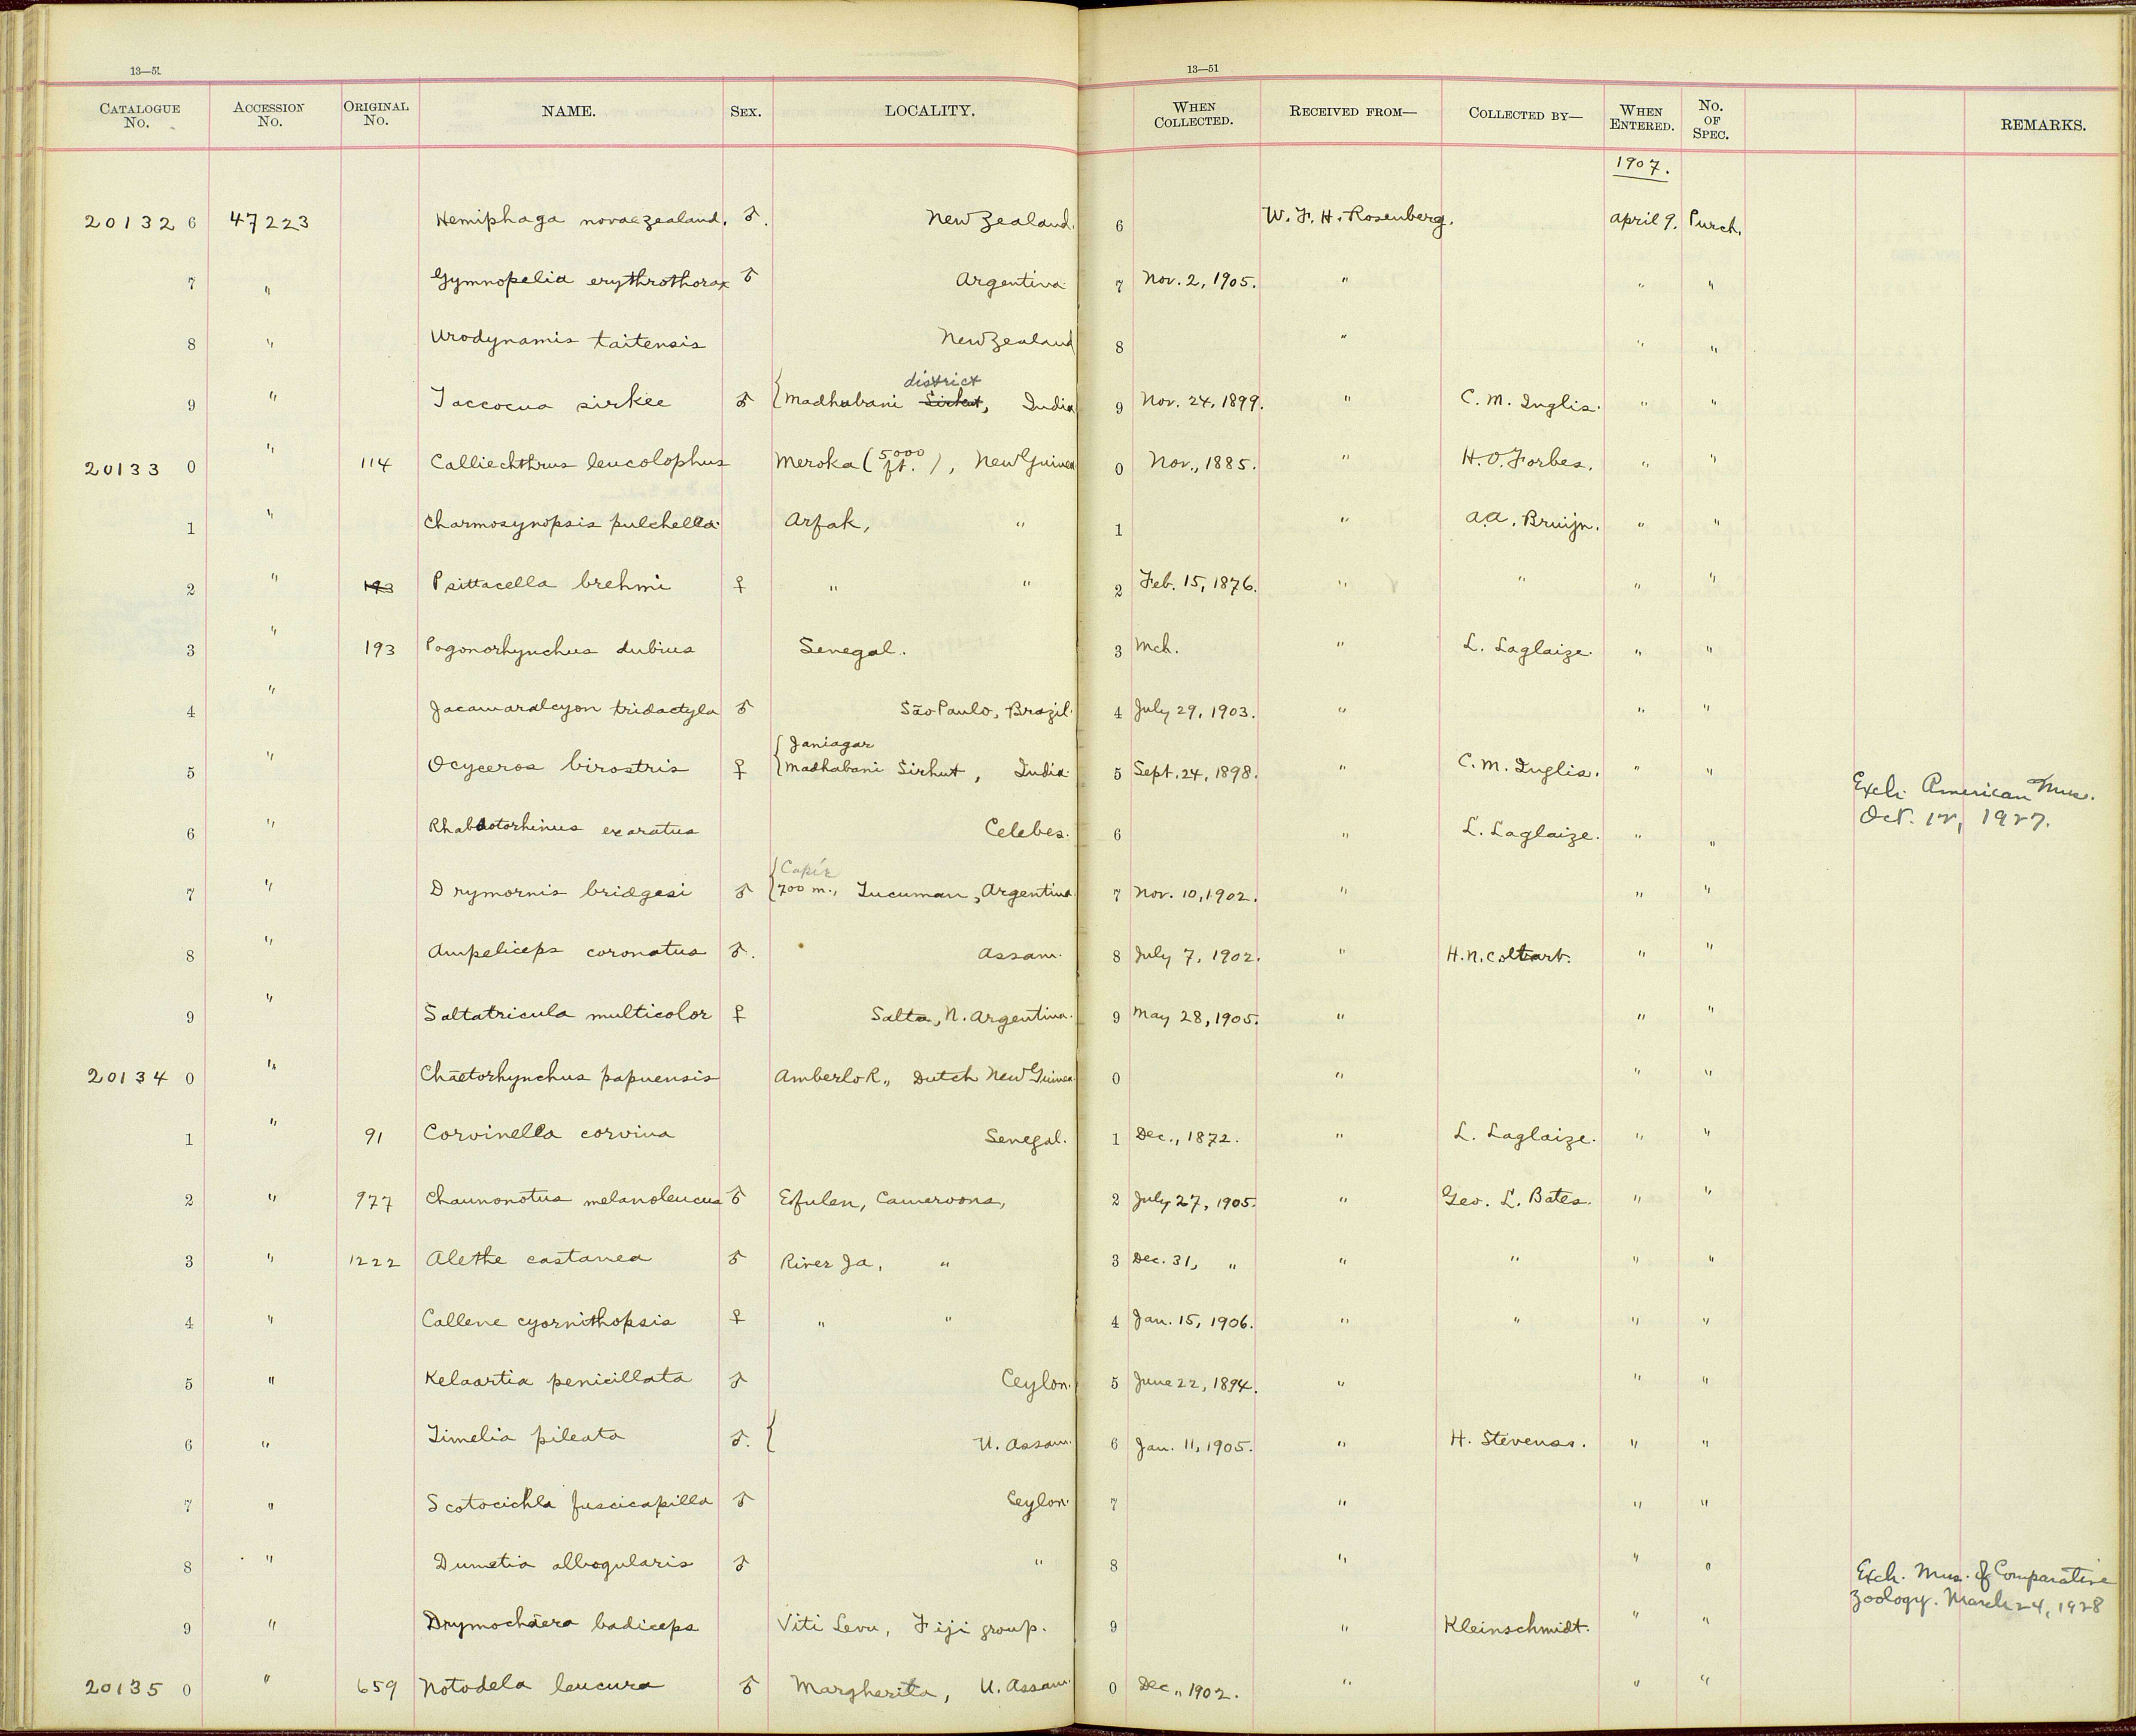 13—51 13—51
CATALOGUE No. ACCESSION No. ORIGINAL No. NAME. SEX. LOCALITY. WHEN COLLECTED. RECEIVED FROM— COLLECTED BY— WHEN ENTERED. No. OF SPEC. REMARKS.
1907.
20132 6 47223 Hemiphaga novaezealand. ♂. New Zealand. 6 W. F. H. Rosenberg. April 9. Purch.
7 " Gymnopelia erythrothorax ♂ Argentina 7 Nov. 2, 1905. " " "
8 " Urodynamis taitensis New Zealand 8 " " "
district
9 " Taccocua sirkee ♂ { Madhubani Sirhut, India 9 Nov. 24, 1899. " C. M. Inglis. " "
20133 0 " 114 Calliechthrus leucolophus Meroka (5000 ft.), New Guinea 0 Nov., 1885. " H. O. Forbes. " "
1 " Charmosynopsis pulchella. Arfak, " 1 " A.A. Bruijn. " "
2 " 193 Psittacella brehmi ♀ " " 2 Feb. 15, 1876. " " " "
3 " 193 Pogonorhynchus dubius Senegal. 3 Mch. " L. Laglaize. " "
4 " Jacamaralcyon tridactyla ♂ São Paulo, Brazil. 4 July 29, 1903. " " "
{ Janiagar
5 " Ocyceros birostris ♀ Madhabani Sirhut, India. 5 Sept. 24, 1898. " C. M. Inglis. " "
Exch. American Mus.
Oct. 12, 1927.
6 " Rhabdotorhinus exaratus Celebes. 6 " L. Laglaize. " "
{ Capíz
7 " Drymornis bridgesi ♂ 700 m., Tucuman, Argentina. 7 Nov. 10, 1902. " " "
8 " Ampeliceps coronatus ♂. Assam. 8 July 7, 1902. " H. N. Coltart. " "
9 " Saltatricula multicolor ♀ Salta, N. Argentina. 9 May 28, 1905. " " "
20134 0 " Chaetorhynchus papuensis Amberlo R., Dutch New Guinea 0 " " "
1 " 91 Corvinella corvina Senegal. 1 Dec., 1872. " L. Laglaize. " "
2 " 977 Chaunonotus melanoleucus ♂ Efulen, Cameroons, 2 July 27, 1905. " Geo. L. Bates. " "
3 " 1222 Alethe castanea ♂ River Ja, " 3 Dec. 31, " " " " "
4 " Callene cyornithopsis ♀ " " 4 Jan. 15, 1906. " " " "
5 " Kelaartia penicillata ♂ Ceylon. 5 June 22, 1894. " " "
6 " Timelia pileata ♂. { U. Assam. 6 Jan. 11, 1905. " H. Stevens. " "
7 " Scotocichla fuscicapilla ♂ Ceylon. 7 " " "
8 " Dumetia albogularis ♂ " 8 " " "
Exch. Mus. of Comparative
Zoology. March 24, 1928
9 " Drymochaera badiceps Viti Levu, Fiji group. 9 " Kleinschmidt. " "
20135 0 " 659 Notodela leucura ♂ Margherita, U. Assam. 0 Dec., 1902. " " "